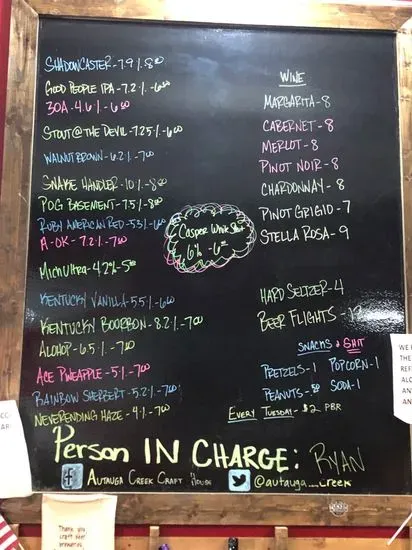 SHADOWCASTER - 7.9% 8.00
GOOD PEOPLE IPA - 7.2% - 6.00
30A - 4.6% - 6.00
STOUT @ THE DEVIL - 7.25% - 6.00
WALNUT BROWN - 6.2% - 7.00
SNAKE HANDLER - 10% - 8.00
POG BASEMENT - 7.5% - 8.00
RUBY AMERICAN RED - 5.3% - 6.00
A-OK - 7.2% - 7.00
MICH ULTRA - 4.2% - 5.00
KENTUCKY VANILLA - 5.5% - 6.00
KENTUCKY BOURBON - 8.2% - 7.00
ALOHOP - 6.5% - 7.00
ACE PINEAPPLE - 5% - 7.00
RAINBOW SHERBERT - 5.2% - 7.00
NEVERENDING HAZE - 4% - 7.00
CASPER WHITE STOUT
6% - 6.00
WINE
MARGARITA - 8
CABERNET - 8
MERLOT - 8
PINOT NOIR - 8
CHARDONNAY - 8
PINOT GRIGIO - 7
STELLA ROSA - 9
HARD SELTZER - 4
BEER FLIGHTS - 12
SNACKS & SHIT
PRETZELS - 1 POPCORN - 1
PEANUTS - .50 SODA - 1
EVERY TUESDAY - $2 PBR
Person IN CHARGE: RYAN
f AUTAUGA CREEK CRAFT HOUSE
@autauga_creek
Thank you
craft beer
breweries
WE